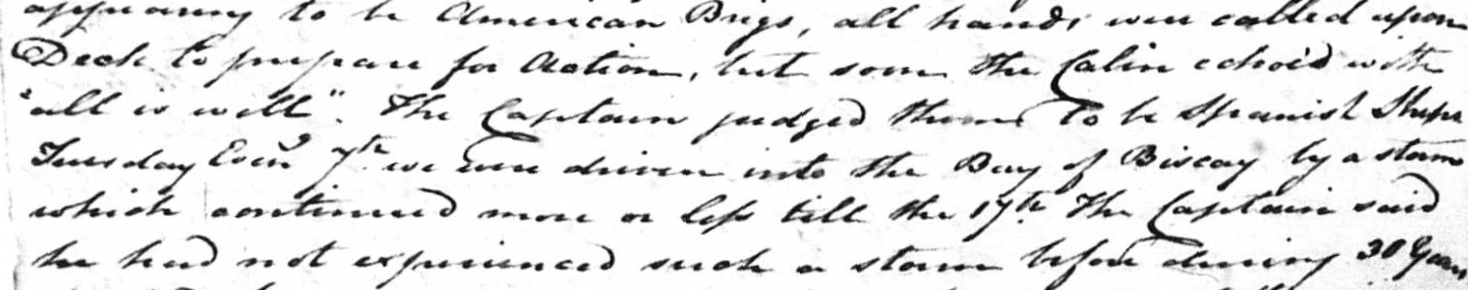 appearing to be American Brigs, all hands were called upon
Deck to prepare for Action, but soon the Cabin echo'd with
"all is well". The Captain judged them to be Spanish Ships
Tuesday Eveng 7th we were driven into the Bay of Biscay by a storm
which continued more or less till the 17th The Captain said
he had not experienced such a storm before during 30 Years